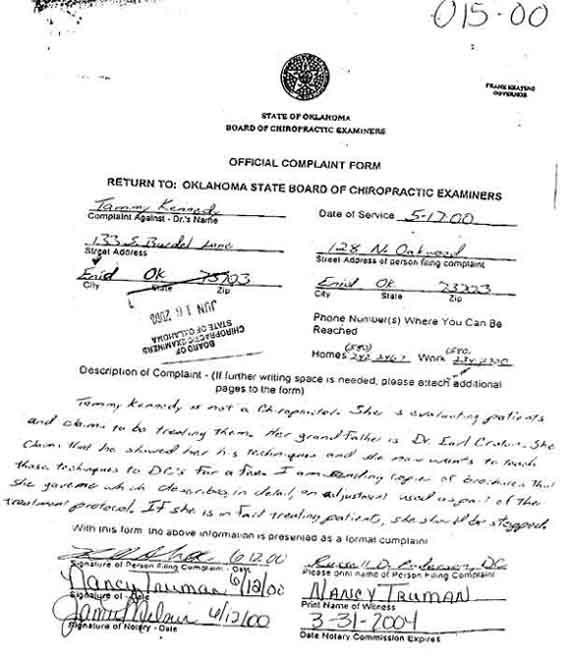 015-00
FRANK KEATING
GOVERNOR
STATE OF OKLAHOMA
BOARD OF CHIROPRACTIC EXAMINERS
OFFICIAL COMPLAINT FORM
RETURN TO: OKLAHOMA STATE BOARD OF CHIROPRACTIC EXAMINERS
Tammy Kennedy
Complaint Against - Dr.'s Name
Date of Service 5-17-00
133 S.
Street Address
128 N. Oakwood
Street Address of person filing complaint
Enid OK 73703
City State Zip
Enid OK 73703
City State Zip
JUN 16 2000
BOARD OF
CHIROPRACTIC EXAMINERS
STATE OF OKLAHOMA
Phone Number(s) Where You Can Be
Reached
(580) (580)
Homes Work
Description of Complaint - (If further writing space is needed, please attach additional
pages to the form)
Tammy Kennedy is not a Chiropractor. She is evaluating patients
and claims to be treating them. Her grandfather is Dr. Earl. She
Claims that he showed her his techniques and she now wants to teach
these techniques to DC's for a fee. I am sending copies of brochures that
she gave me which describes, in detail, an adjustment used as part of the
treatment protocol. If she is in fact treating patients, she should be stopped.
With this form the above information is presented as a formal complaint
6-12-00
Signature of Person Filing Complaint - Date
Russell D. DC
Please print name of Person Filing Complaint
Nancy Truman 6/12/00
Signature of - Date
NANCY TRUMAN
Print Name of Witness
6/12/00
Signature of Notary - Date
3-31-2004
Date Notary Commission Expires